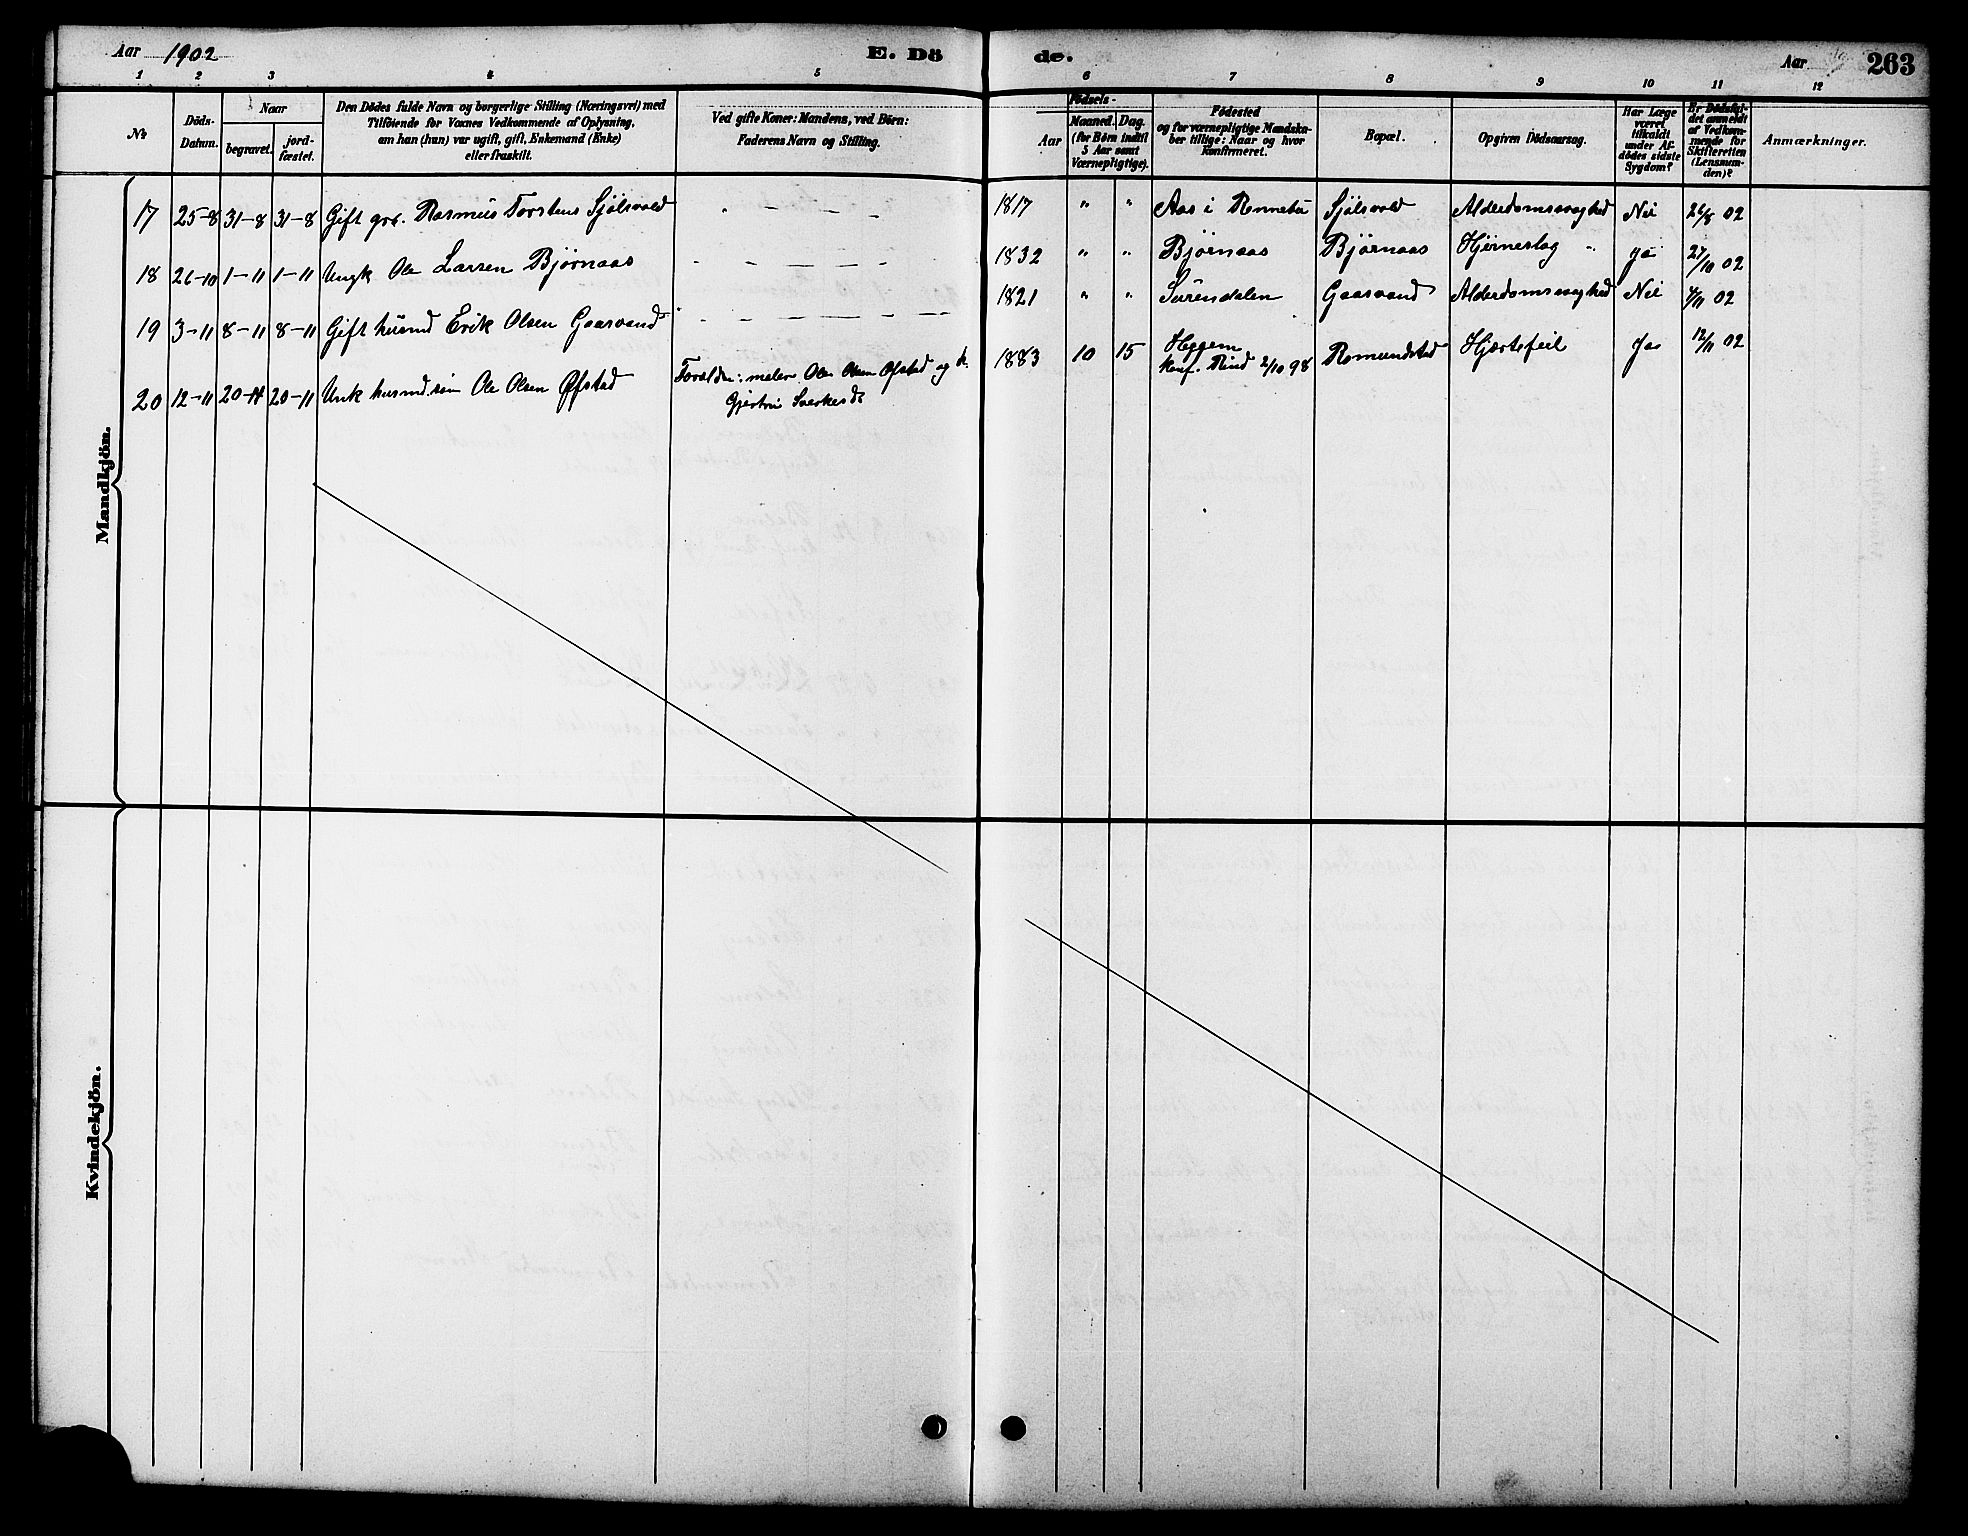 Aar 1902 E. Dö
1 2 3 4 5
№ Döds-Datum. Naar begravet. jord-fæstet. Den Dödes fulde Navn og borgerlige Stilling (Næringsvei) med Tilföiende for Voxnes Vedkommende af Oplysning, om han (hun) var ugift, gift, Enkemand (Enke) eller fraskilt. Ved gifte Koner: Mandens, ved Börn: Faderens Navn og Stilling.
Mandkjön.
17 25-8 31-8 31-8 Gift gbr. Rasmus Torstens Sjölsvold " — — — "
18 26-10 1-11 1-11 Ungk Ole Larsen Bjørnaas " — — — —
19 3-11 8-11 8-11 Gift husmd Erik Olsen Gaasvand " — — — —
20 12-11 20-11 20-11 Unk husmd.sön Ole Olsen Øfstad Forældre: maler Ole Olsen Øfstad og k.
Gjertru Sverkesdr
Kvindekjön.
de. Aar 263
6 7 8 9 10 11 12
Födsels- Aar Maaned. Dag. (for Börn indtil 5 Aar samt Værnepligtige). Födested og for værnepligtige Mandska-ber tillige: Naar og hvor Konfirmeret. Bopæl. Opgiven Dödsaarsag. Har Læge været tilkaldt under Af-dödes sidste Sygdom? Er Dödsfal-det anmeldt af Vedkom-mende for Skifteretten (Lensman-den)? Anmærkninger.
1817 " " Aas i Rennebu Sjölsvold Alderdomssvaghed Nei 26/8 02
1832 " " Bjørnaas Bjørnaas Hjerneslag " ja 27/10 02
1821 " " Surendalen Gaasvand Alderdomssvaghed Nei 4/11 02
1883 10 15 Heggem
Konf. Rind 2/10 98 Romundstad Hjertefeil Ja 12/11 02